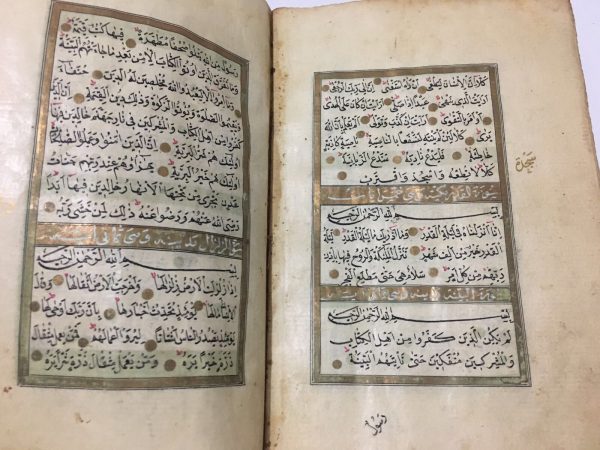 كلا ان الانسان ليطغى ان راه استغنى ان الى ربك الرجعى
ارايت الذي ينهى عبدا اذا صلى ارايت ان كان على الهدى
او امر بالتقوى ارايت ان كذب وتولى الم يعلم بان الله
يرى كلا لئن لم ينته لنسفعا بالناصية ناصية كاذبة
خاطئة فليدع ناديه سندع الزبانية
كلا لا تطعه واسجد واقترب
سجدة
سورة القدر مكية وهي خمس ايات
بسم الله الرحمن الرحيم
انا انزلناه في ليلة القدر وما ادريك ما ليلة القدر ليلة
القدر خير من الف شهر تنزل الملئكة والروح فيها باذن
ربهم من كل امر سلام هي حتى مطلع الفجر
سورة البينة
بسم الله الرحمن الرحيم
لم يكن الذين كفروا من اهل الكتاب
والمشركين منفكين حتى تاتيهم البينة
رسول
رسول من الله يتلوا صحفا مطهرة فيها كتب قيمة
وما تفرق الذين اوتوا الكتاب الا من بعد ما جاءتهم البينة
وما امروا الا ليعبدوا الله مخلصين له الدين حنفاء
ويقيموا الصلوة ويؤتوا الزكوة وذلك دين القيمة ان الذين
كفروا من اهل الكتاب والمشركين في نار جهنم خالدين فيها
اولئك هم شر البرية ان الذين امنوا وعملوا الصالحات
اولئك هم خير البرية جزاؤهم عند ربهم جنات
عدن تجري من تحتها الانهار خالدين فيها ابدا
رضي الله عنهم ورضوا عنه ذلك لمن خشي ربه
سورة الزلزال وهي ثماني ايات
بسم الله الرحمن الرحيم
اذا زلزلت الارض زلزالها واخرجت الارض اثقالها وقال
الانسان مالها يومئذ تحدث اخبارها بان ربك اوحى لها
يومئذ يصدر الناس اشتاتا ليروا اعمالهم فمن يعمل مثقال
ذرة خيرا يره ومن يعمل مثقال ذرة شرا يره